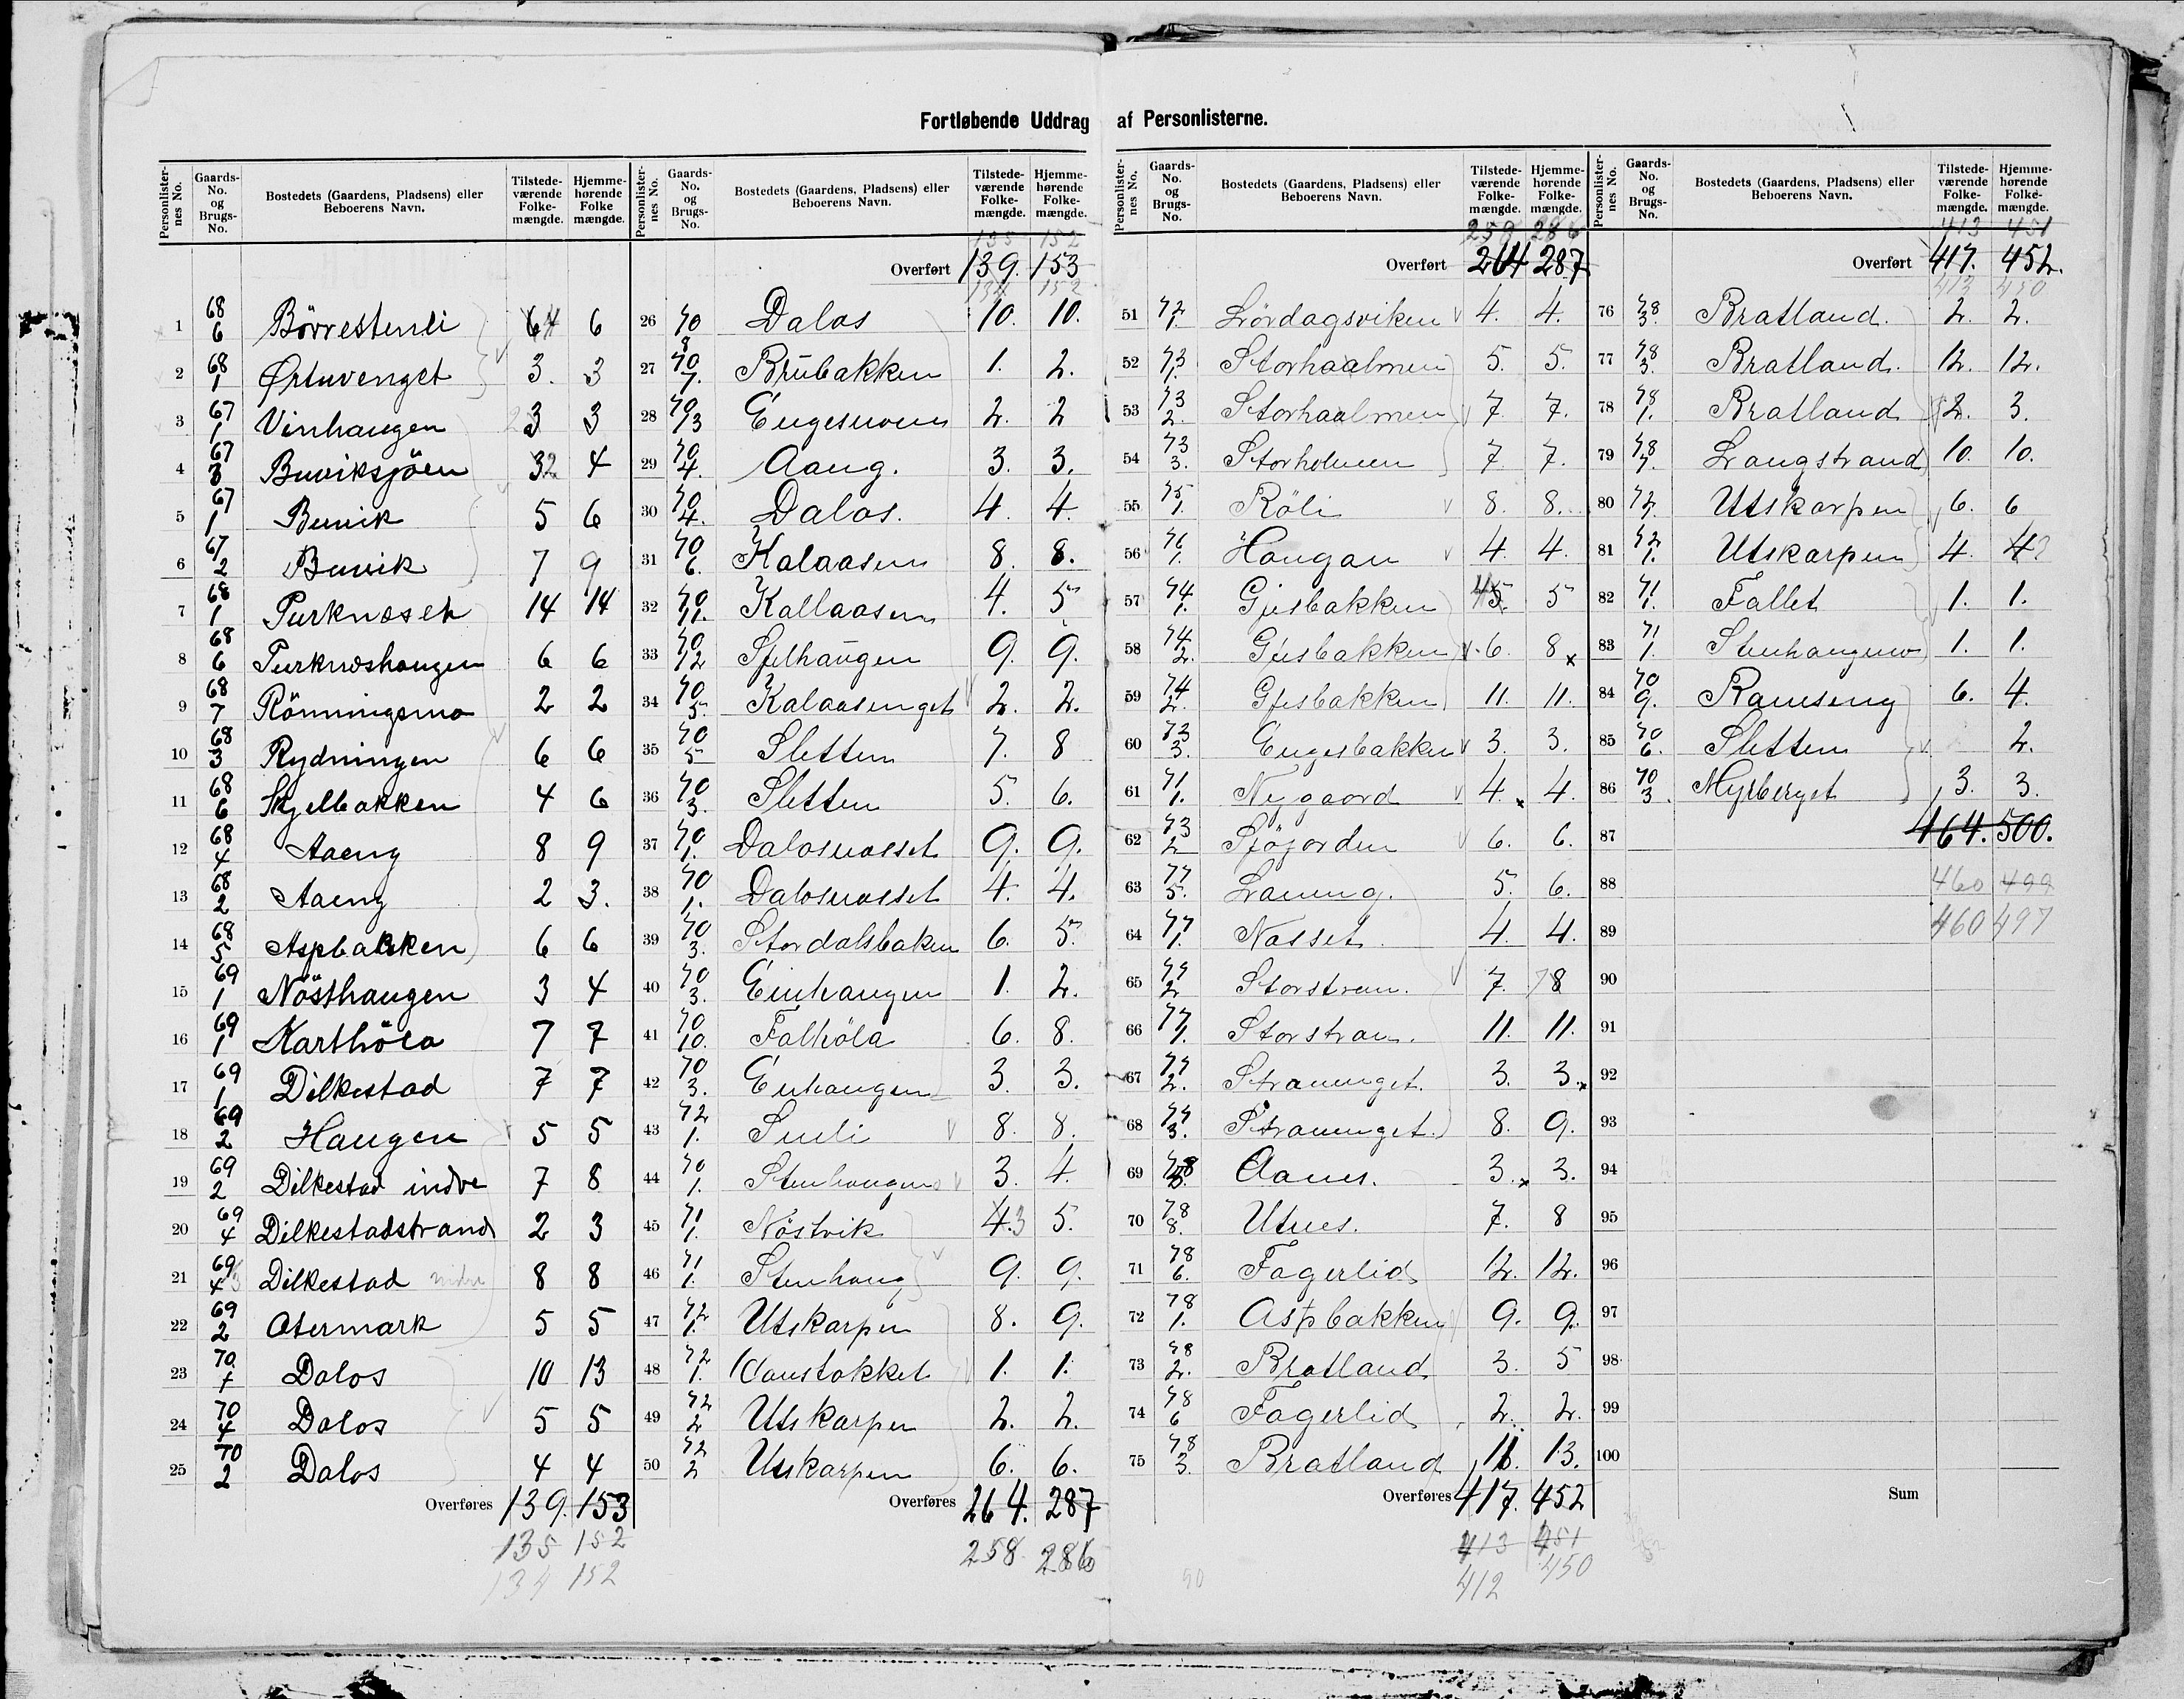 Fortløbende Uddrag af Personlisterne.
Personlisternes No. | Gaards-No. og Brugs-No. | Bostedets (Gaardens, Pladsens) eller Beboerens Navn. | Tilstedeværende Folkemængde. | Hjemmehørende Folkemængde.
1 68/6 Börrestenli 64 6
2 68/1 Ørtuvenget 3. 3
3 67/1 Vinhaugen 3 3
4 67/3 Buviksjöen 32 4
5 67/1 Buvik 5 6
6 67/2 Buvik 7 9
7 68/1 Purknæset 14 14
8 68/6 Purknæshaugen 6 6
9 68/7 Rönningsmo 2 2
10 68/3 Rydningen 6 6
11 68/6 Skjelbakken 4 6
12 68/4 Aaeng 8 9
13 68/2 Aaeng 2 3.
14 68/5 Aspbakken 6 6
15 69/1 Nösthaugen 3 4
16 69/1 Karthöla 7 7
17 69/1 Dilkestad 7 7
18 69/2 Haugen 5 5
19 69/2 Dilkestad indre 7 8
20 69/4 Dilkestadstrand 2 3
21 69/4 Dilkestad indre 8 8
22 69/2 Otermark 5 5
23 70/1 Dalos 10 13
24 70/4 Dalos 5 5
25 70/2 Dalos 4 4
Overføres 139. 153
135 152
134 152
135 152
Overført 139. 153
134 152
26 70/8 Dalos 10. 10.
27 70/7. Brübakken 1. 2.
28 70/13 Engesmoen 2. 2
29 70/4. Aaeng. 3. 3.
30 70/4. Dalos. 4. 4.
31 70/6. Kalaasen 8. 8.
32 70/11. Kallaasen 4. 5
33 70/12 Sjelhaugen 9. 9.
34 70/5. Kalaasenget 2. 2.
35 70/5 Sletten 7. 8
36 70/3. Sletten 5. 6.
37 70/1. Dalosnasset 9. 9.
38 70/1. Dalosnasset 4. 4.
39 70/3. Stordalsbaken 6. 5.
40 70/3. Einhaugen 1. 2.
41 70/10. Falhöla 6. 8.
42 70/3. Enhaugen 3. 3.
43 72/1. Smli 8. 8.
44 70/1. Stenhaugen 3. 4.
45 71/1. Nöstvik 4.3 5.
46 71/1. Stenhaug 9. 9.
47 72/1. Utskarpen 8. 9.
48 72/1. Vanstokket 1. 1.
49 72/2 Utskarpen 2. 2.
50 72/2 Utskarpen 6. 6.
Overføres 264. 287
258 286
258 286
Overført 264 287
51 72/1. Lördagsviken 4. 4.
52 73/1. Storhaalmen 5. 5.
53 73/2. Storhaalmen 7. 7.
54 73/3. Storholmen 7. 7.
55 75/1. Röli 8. 8.
56 76/1. Haugan 4. 4.
57 74/1. Gjesbakken 45. 5
58 74/2. Gjesbakken 6. 8 x
59 74/2. Gjesbakken 11. 11.
60 73/3. Engesbakken 3. 3.
61 71/1. Nygaard 4. x 4.
62 73/2 Sjöjorden 6. 6.
63 77/5. Laneng. 5. 6.
64 77/1. Nasset. 4. 4.
65 77/2 Storstran. 7. 78
66 77/1. Storstran. 11. 11.
67 77/2. Stranenget. 3. 3. x
68 77/3. Stranenget. 8. 9.
69 78 Aanes. 3. x 3.
70 78/8. Utnes. 7. 8
71 78/6. Fagerlid 12. 12.
72 78/1. Aspbakken 9. 9.
73 78/2. Bratland 3. 5
74 78/6 Fagerlid 2. 2.
75 78/3. Bratland 11. 13.
Overføres 417. 452
413 451
412 450
90
413 451
Overført 417. 452.
413 450
76 78/3. Bratland. 2. 2.
77 78/3. Bratland. 12. 12.
78 78/1. Bratland 2. 3.
79 78/7. Langstrand 10. 10.
80 72/1. Utskarpen 6. 6
81 72/1. Utskarpen 4. 4
82 71/1. Fallet 1. 1.
83 71/1. Stenhaugmo 1. 1.
84 70/9. Ramseng 6. 4.
85 70/6. Sletten 2.
86 70/3. Myrberget 3. 3.
87 464. 500.
88 460 499
89 460 497
90
91
92
93
94
95
96
97
98
99
100
Sum